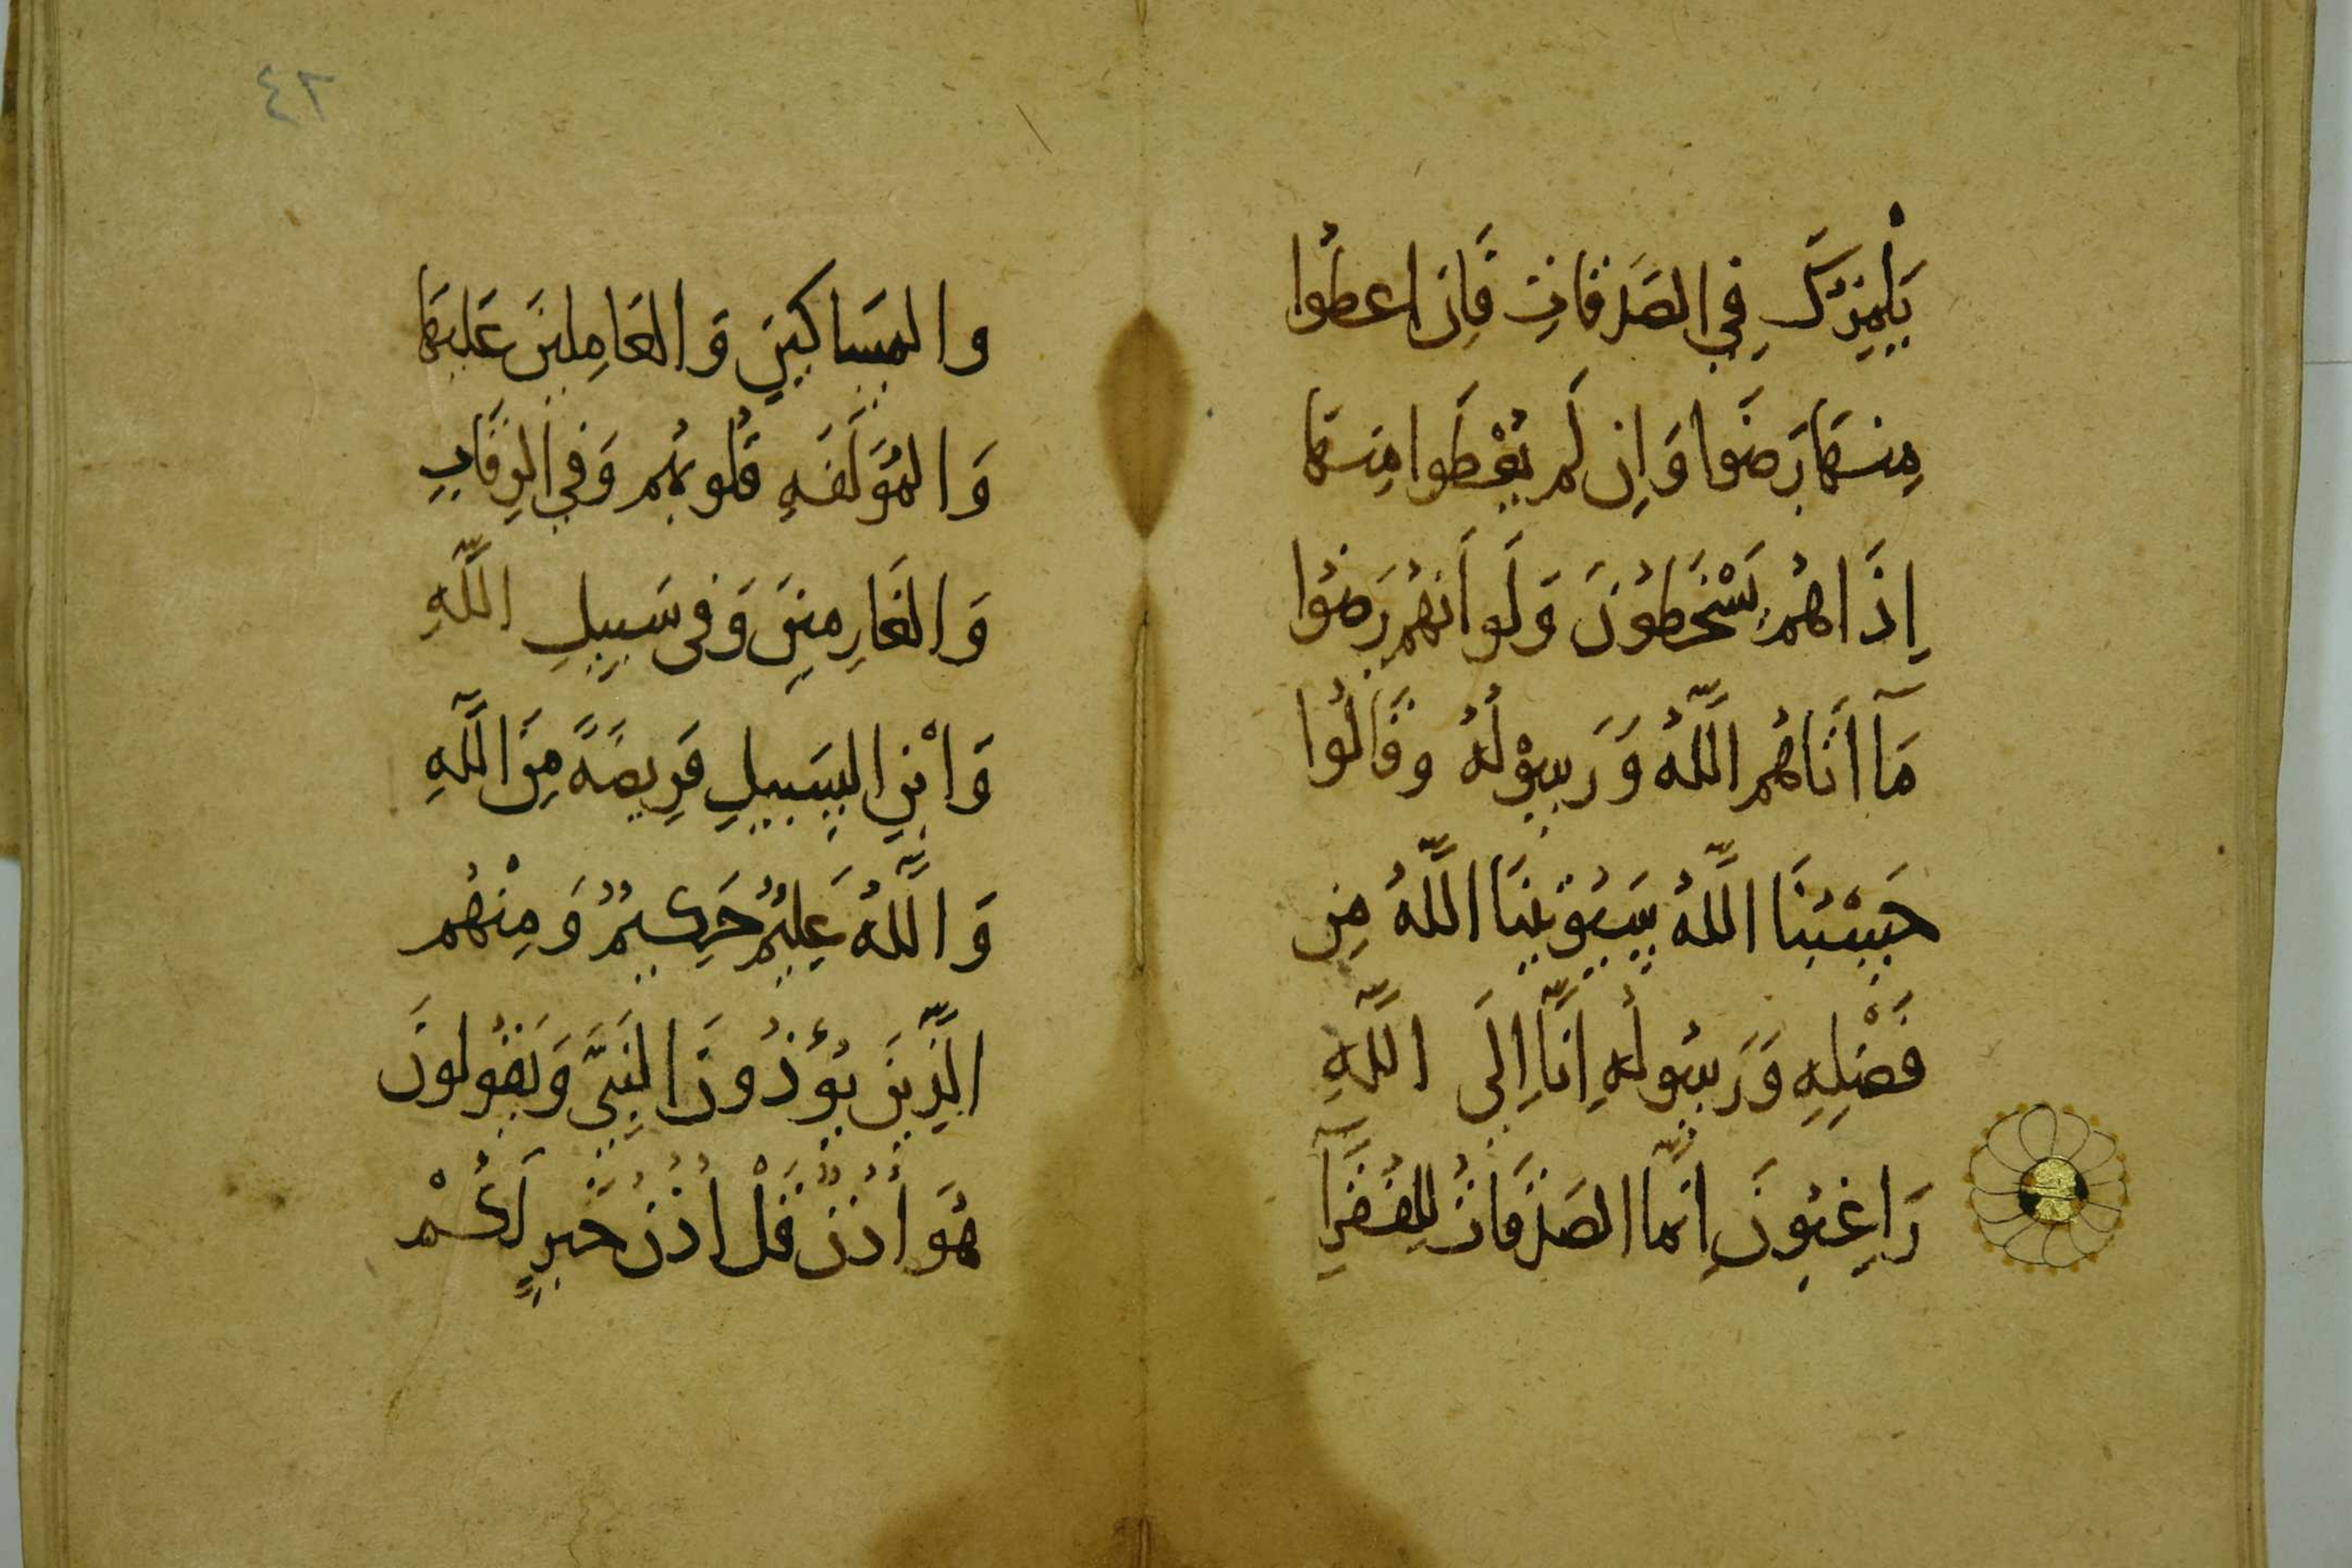 يَلْمِزُكَ فِي الصَدَقَاتِ فَاِن اعطُوا
مِنهَا رَضَوا وَاِن لَم يُعْطَوا مِنهَا
اِذَا هُم يَسْخَطُونَ وَلَو اَنَهُم رَضُوا
مَآ اتَاهُم اللَّهُ وَرَسُوْلُهُ وقَالُوا
حَسْبُنَا اللَّهُ سَيُؤتِينَا اللَّهُ مِن
فَضْلِهِ وَرَسُولُهِ اِنَّا اِلَى اللَّهِ
رَاغِبُونَ اِنَّما الصَدَقَاتُ لِلفُقَرَآِ
والمَسَاكِينِ وَالعَامِلِينَ عَلَيهَا
وَالمُؤَلَفَهِ قُلُوبُهُم وَفِي الرِقَابِ
وَالغَارِمِينَ وَفى سَبِيلِ اللَّهِ
وَابْنِ السَبِيلِ فَرِيضَةً مِنَ اللَّهِ
وَاللَّهُ عَلِيمٌ حَكِيمٌ وَمِنْهُم
الَّذِينَ يُؤْذُونَ النَبِىَّ وَيَقُولونَ
هُوَ اُذُنٌ قُلْ اُذُنُ خَيرٍ لَكُمْ
٤٢